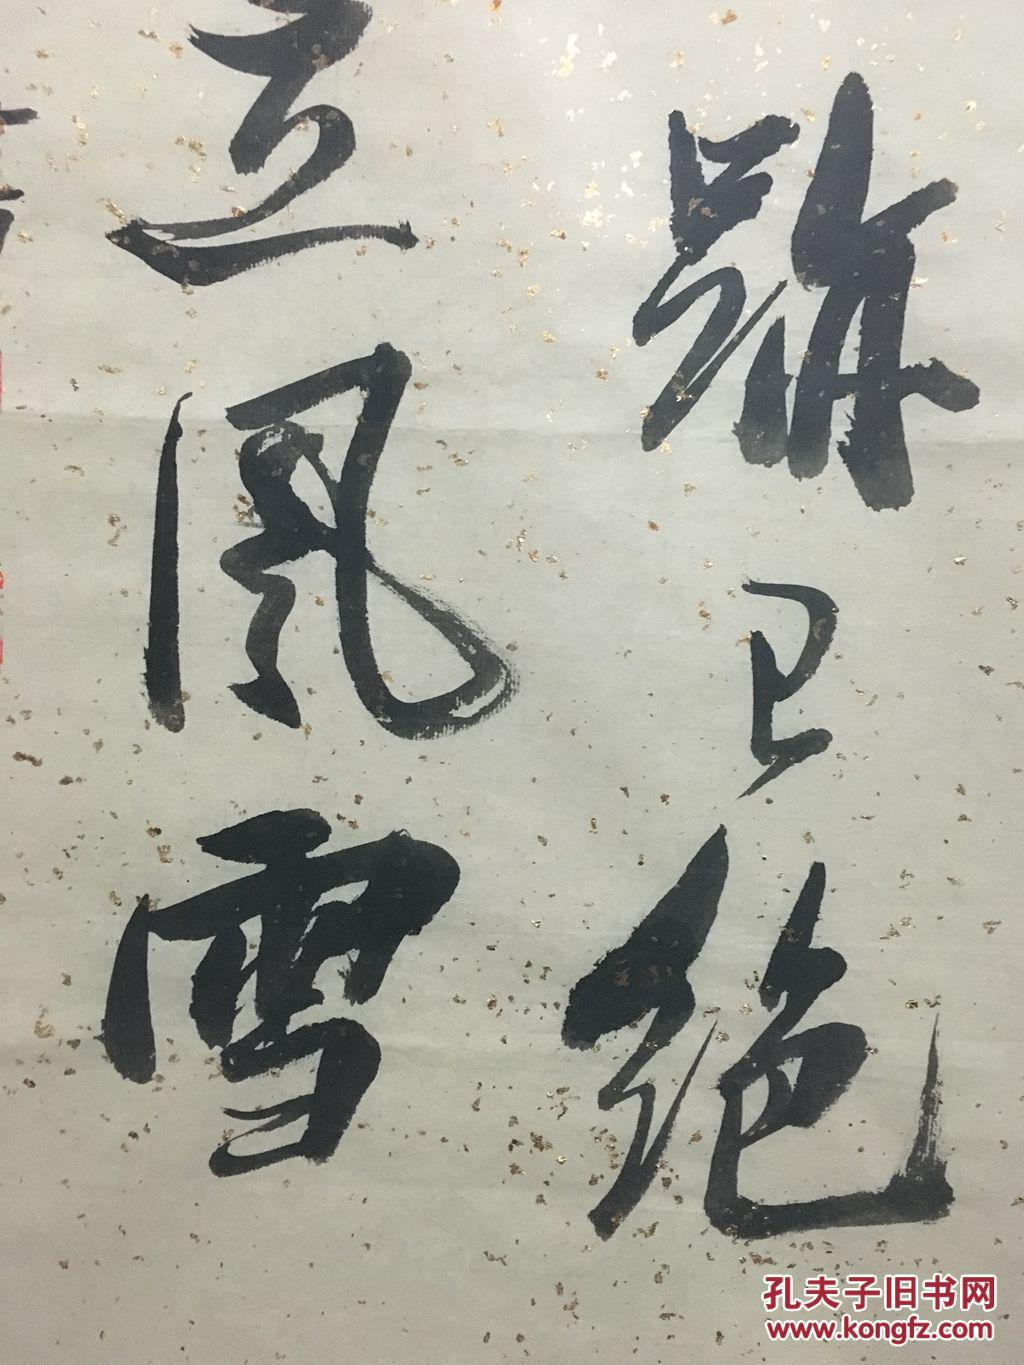 跡已絕
立風雪
孔夫子旧书网
www.kongfz.com